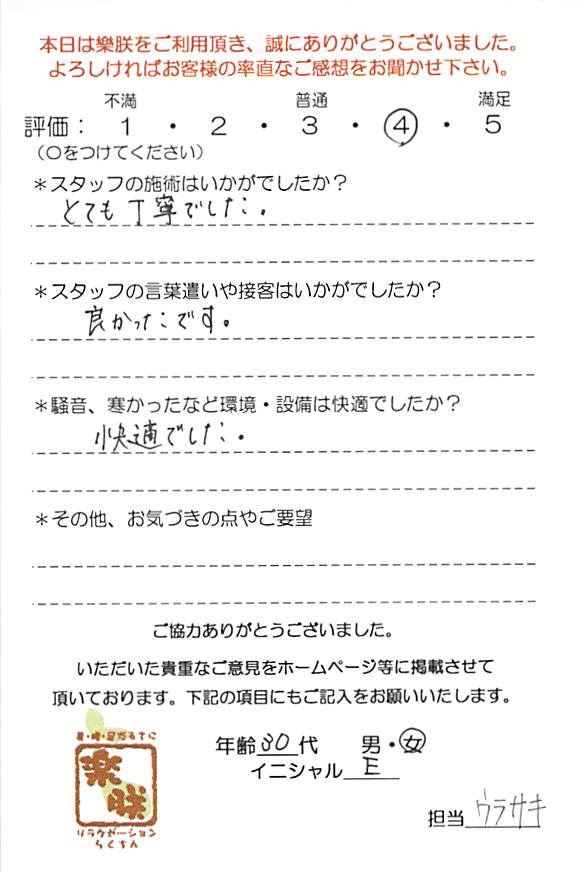 本日は樂朕をご利用頂き、誠にありがとうございました。
よろしければお客様の率直なご感想をお聞かせ下さい。
不満 普通 満足
評価： 1 ・ 2 ・ 3 ・ 4 ・ 5
（○をつけてください）
＊スタッフの施術はいかがでしたか？
とても丁寧でした。
＊スタッフの言葉遣いや接客はいかがでしたか？
良かったです。
＊騒音、寒かったなど環境・設備は快適でしたか？
快適でした。
＊その他、お気づきの点やご要望
ご協力ありがとうございました。
いただいた貴重なご意見をホームページ等に掲載させて
頂いております。下記の項目にもご記入をお願いいたします。
年齢 30 代 男・女
イニシャル E
担当 ウラサキ
楽朕
リラクゼーション
らくちん